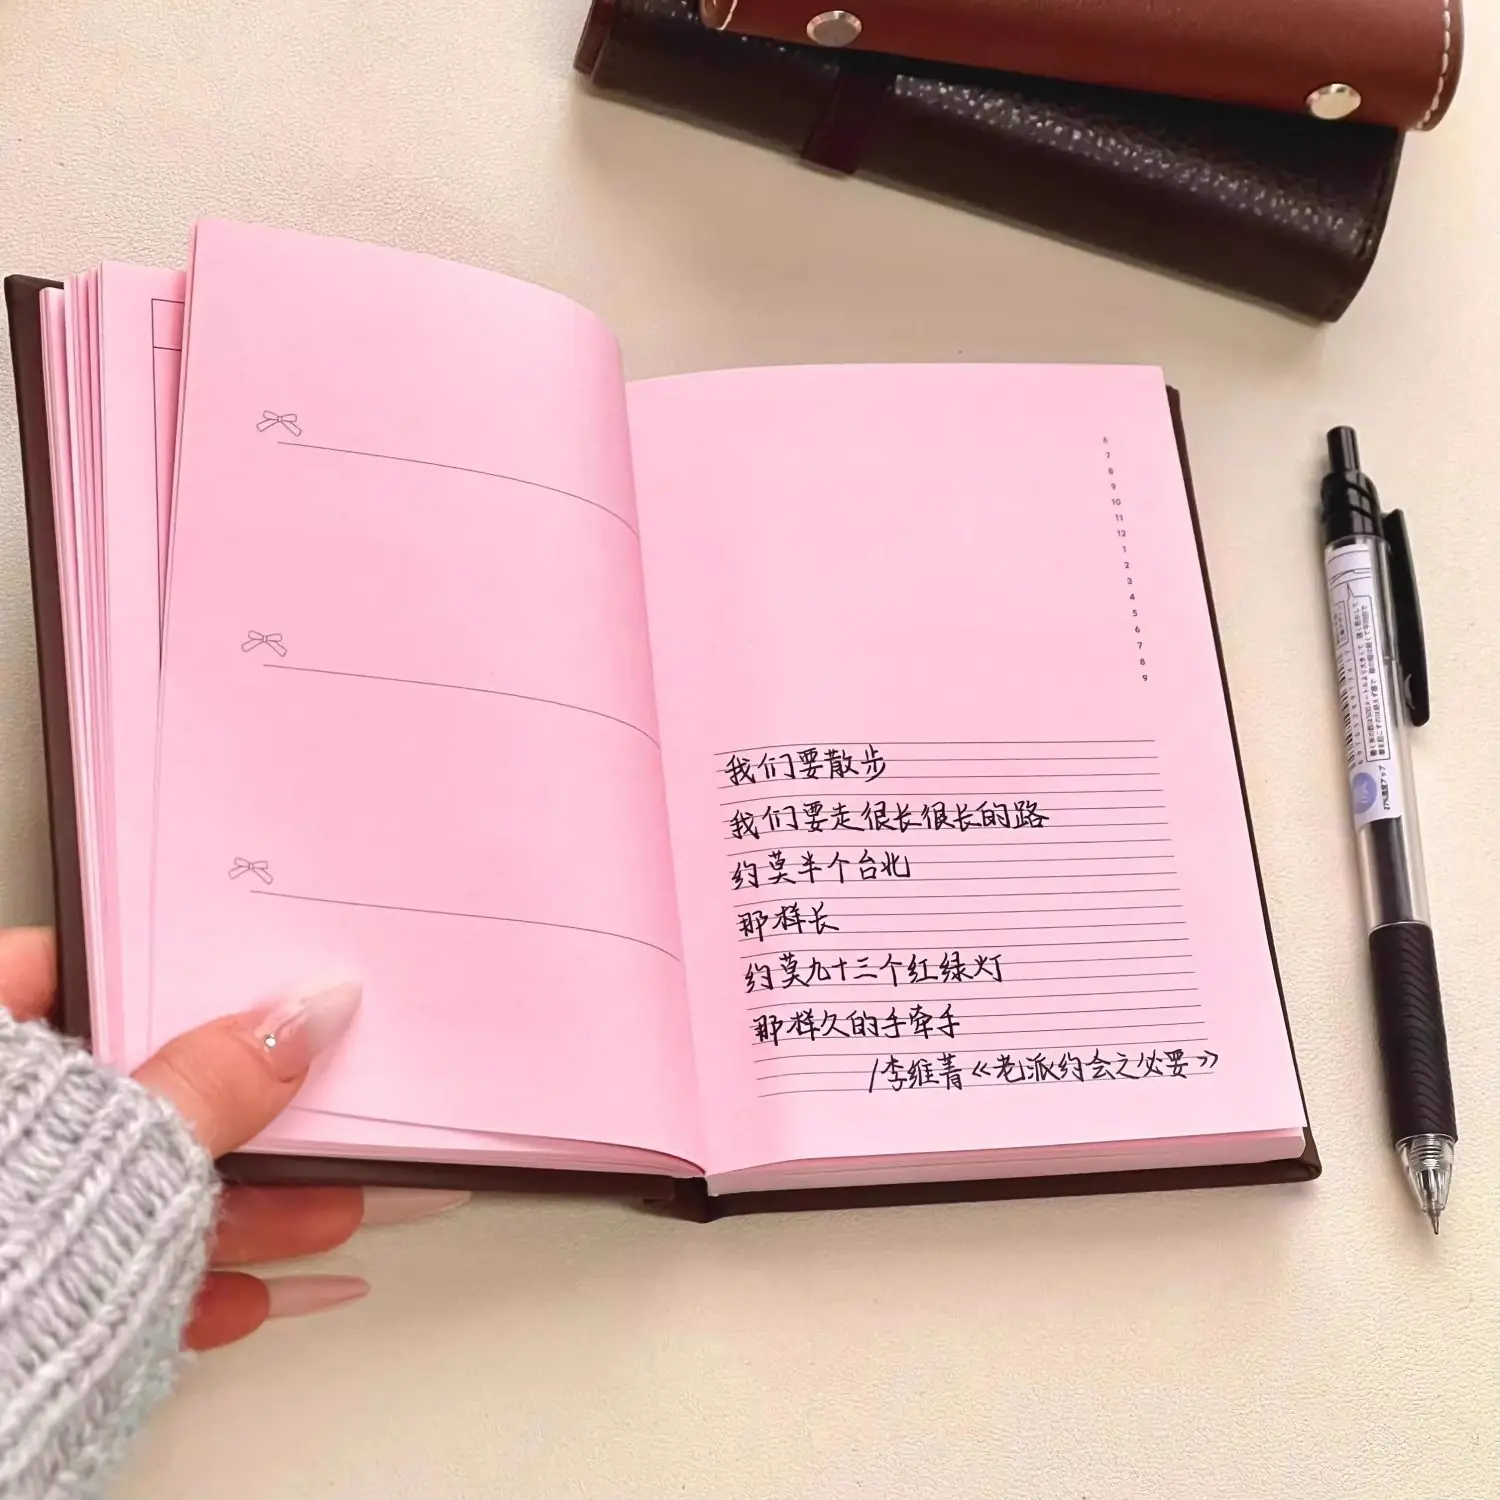 6
7
8
9
10
11
12
1
2
3
4
5
6
7
8
9
我们要散步
我们要走很长很长的路
约莫半个台北
那样长
约莫九十三个红绿灯
那样久的手牵手
/李维菁《老派约会之必要》